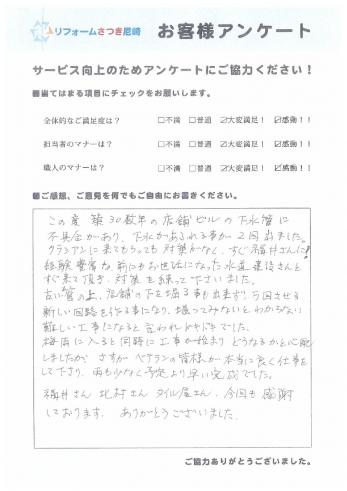 リフォームさつき尼崎 お客様アンケート
サービス向上のためアンケートにご協力ください！
■当てはまる項目にチェックをお願いします。
全体的なご満足度は？ □不満 □普通 ☑大変満足！ ☑感動！！
担当者のマナーは？ □不満 □普通 ☑大変満足！ ☑感動！！
職人のマナーは？ □不満 □普通 ☑大変満足！ ☑感動！！
■ご感想、ご意見を何でもご自由にお書きください。
この度 築30数年の店舗ビルの下水管に
不具合があり、下水があふれる事が2回出ました。
クラシアンに来てもらっても対策がなく、すぐ福井さんに!
経験豊富な前にもお世話になった水道 さんと
すぐ来て頂き、対策を練って下さいました。
古い管の上、店舗の下を掘る事も出来ず、 回させる
新しい回路を作る事になり、掘ってみないとわからない
難しい工事になると言われ ました。
梅雨に入ると同時に工事が始まり どうなるかと心配
しましたが、さすがベテランの皆様が本当に良く仕事を
して下さり、雨も少なく予定より早い完成でした。
福井さん 北村さん タイル屋さん、今回も感謝
しております。 ありがとうございました。
ご協力ありがとうございました。